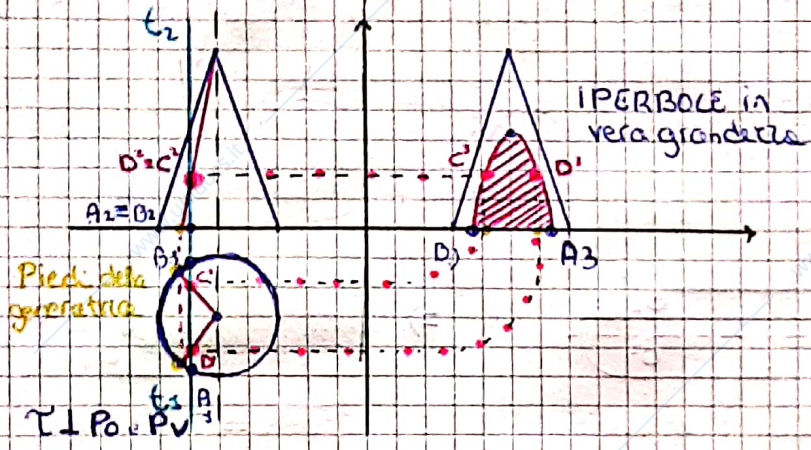 t₂
IPERBOLE in
vera grandezza
D²≡C² C³ D'
A₂≡B₂
B₃ A₃
Piedi della
generatrice
C'
D'
t₁ A
τ⊥P₀ e Pv